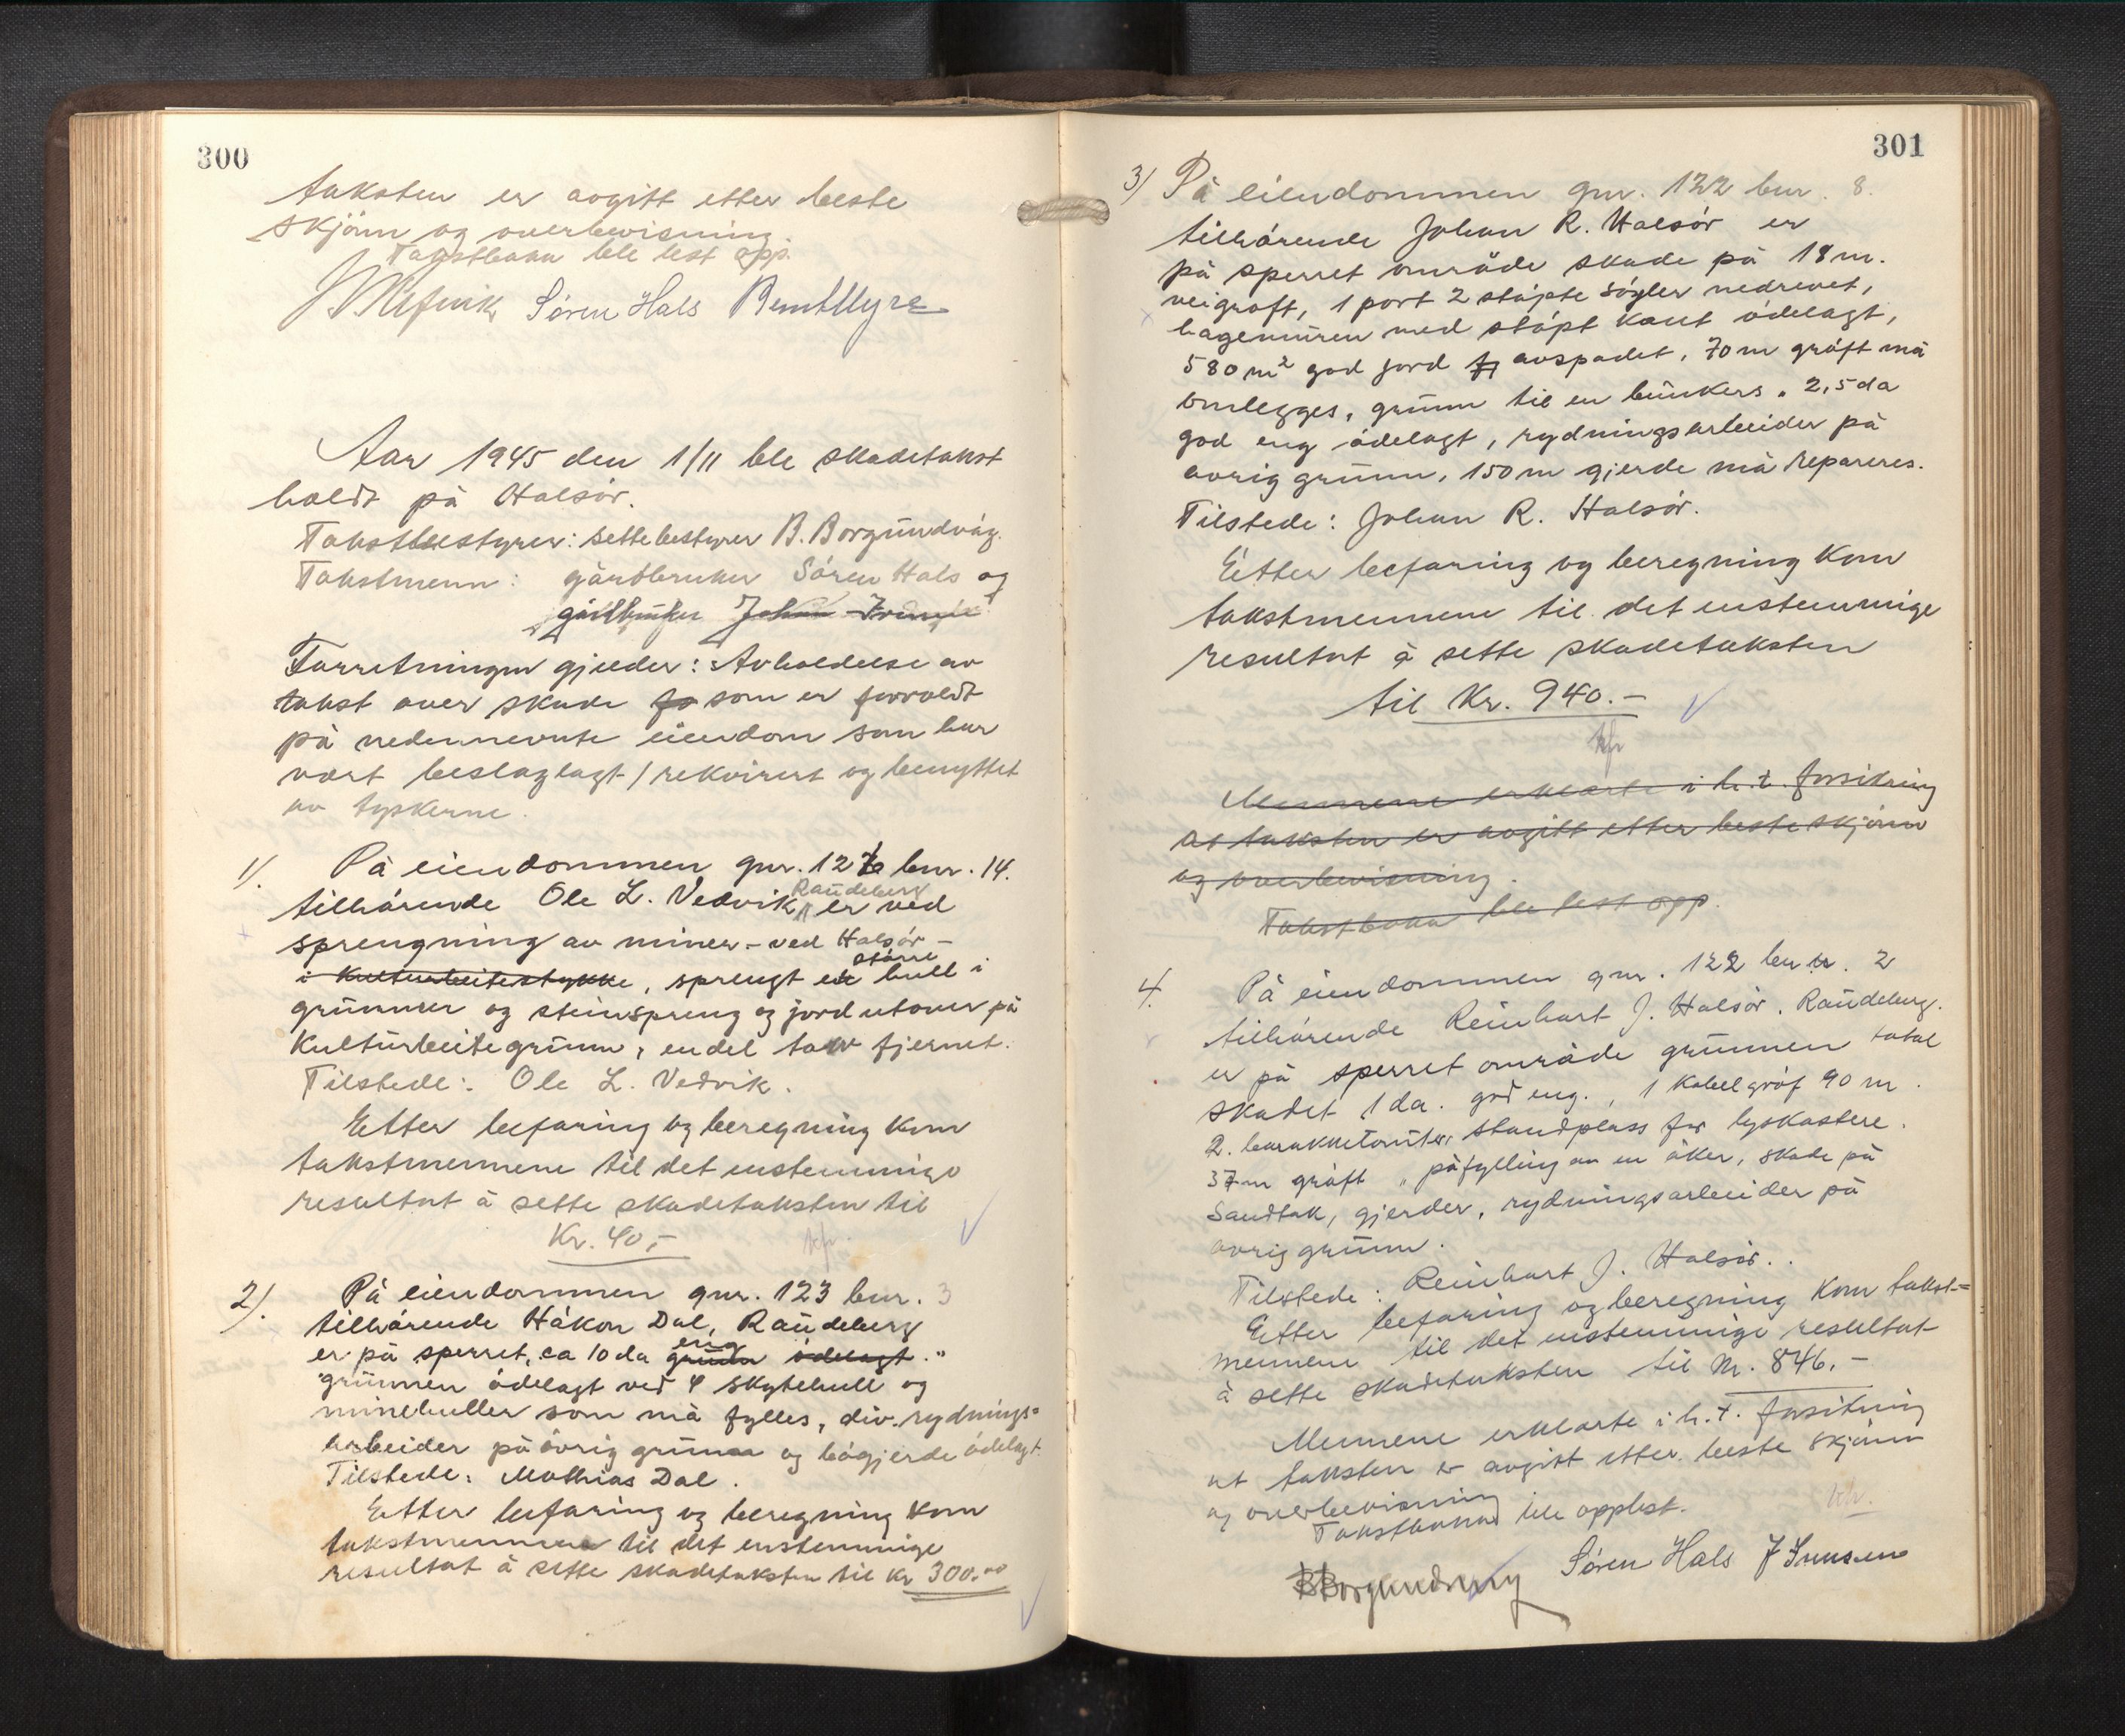 300
taksten er avgitt etter beste
skjönn og overbevisning.
Takstboka ble lest opp.
Sören Hals Bernt Myre
Aar 1945 den 1/11 ble skadetakst
holdt på Halsör.
Takstbestyrer: settebestyrer B. Borgundvåg.
Takstmenn: gårdbruker Sören Hals og
gårdbruker
Forretningen gjelder: Avholdelse av
takst over skade fo som er forvoldt
på nedennevnte eiendom som har
vært beslaglagt / rekvirert og benyttet
av tyskerne.
1). På eiendommen gnr. 122 bnr. 14.
Raudeberg
tilhörende Ole L. Vedvik er ved
sprengning av miner - ved Halsör -
större
i kulturbeitestykke, sprengt et hull i
grunnen og steinspreng og jord utover på
Kulturbeitegrunn, endel torv fjernet.
Tilstede: Ole L. Vedvik.
Etter befaring og beregning kom
takstmennene til det enstemmige
resultat å sette skadetaksten til
Kr. 40,-
2). På eiendommen gnr. 123 bnr. 3
tilhörende Håkon Dal, Raudeberg
eng
er på sperret, ca 10 da grunn ödelagt."
"grunnen ödelagt ved 4 skytehull og
minehuller som må fylles, div. rydnings=
arbeider på övrig grunn og bögjerde ödelagt.
Tilstede: Mathias Dal.
Etter befaring og beregning kom
takstmennene til det enstemmige
resultat å sette skadetaksten til kr 300.00
301
3) På eiendommen gnr. 122 bnr. 8.
tilhörende Johan R. Halsör er
på sperret område skade på 18 m.
veigröft, 1 port 2 stöpte söyler nedrevet,
hagemuren med stöpt kant ödelagt,
580 m² god jord avspadet, 70 m gröft må
omlegges, grunn til en bunkers. 2,5 da
god eng ödelagt, rydningsarbeider på
övrig grunn, 150 m gjerde må repareres.
Tilstede: Johan R. Halsör.
Etter befaring og beregning kom
takstmennene til det enstemmige
resultat å sette skadetaksten
til Kr. 940.-
Mennene erklærte i h.t. forsikring
at taksten er avgitt etter beste skjönn
og overbevisning.
Takstboka ble lest opp.
4. På eiendommen gnr. 122 bnr. 2
tilhörende Reinhart J. Halsör. Raudeberg.
er på sperret område grunnen total
skadet 1 da. god eng., 1 Kabelgröf 90 m.
2. barakketomter, standplass for lyskastere.
37 m gröft " påfylling av en åker, skade på
Sandtak, gjerder, rydningsarbeider på
övrig grunn.
Tilstede: Reinhart J. Halsör..
Etter befaring og beregning kom takst=
mennene til det enstemmige resultat
å sette skadetaksten til kr. 846,-
Mennene erklærte i h.t. forsikring
at taksten er avgitt etter beste skjönn
og overbevisning
Takstboka ble opplest.
BBorgundvåg Sören Hals